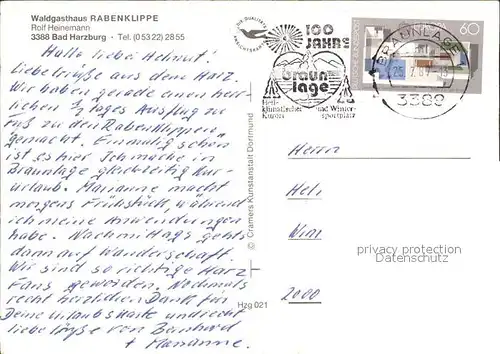 Waldgasthaus RABENKLIPPE
Rolf Heinemann
3388 Bad Harzburg · Tel. (05322) 2855
Hallo lieber Helmut!
Liebe Grüße aus dem Harz.
Wir haben gerade einen herr-
lichen 1/2 tages Ausflug zu
Fuß zu den Rabenklippen
gemacht. Einmalig schön
ist es hier. Ich mache in
Braunlage gleichzeitig Kur-
urlaub. Marianne macht
morgens Frühstück, während
ich meine Anwendungen
habe. Nachmittags geht
dann auf Wanderschaft.
Wir sind so richtige Harz
Fans geworden. Nochmals
recht herzlichen Dank für
Deine Urlaubskarte und recht
liebe Grüße von
+ Marianne.
© Cramers Kunstanstalt Dortmund
Hzg 021
DIE QUALITÄTS
ANSICHTSKARTE
100
JAHRE
braun
lage
Heil-
klimatischer
Kurort
und Winter-
sportplatz
DEUTSCHE BUNDESPOST
EUROPA
60
BRAUNLAGE
25. 7. 87 - 13
3389
Herrn
Hel
Wim
2000
privacy protection
Datenschutz